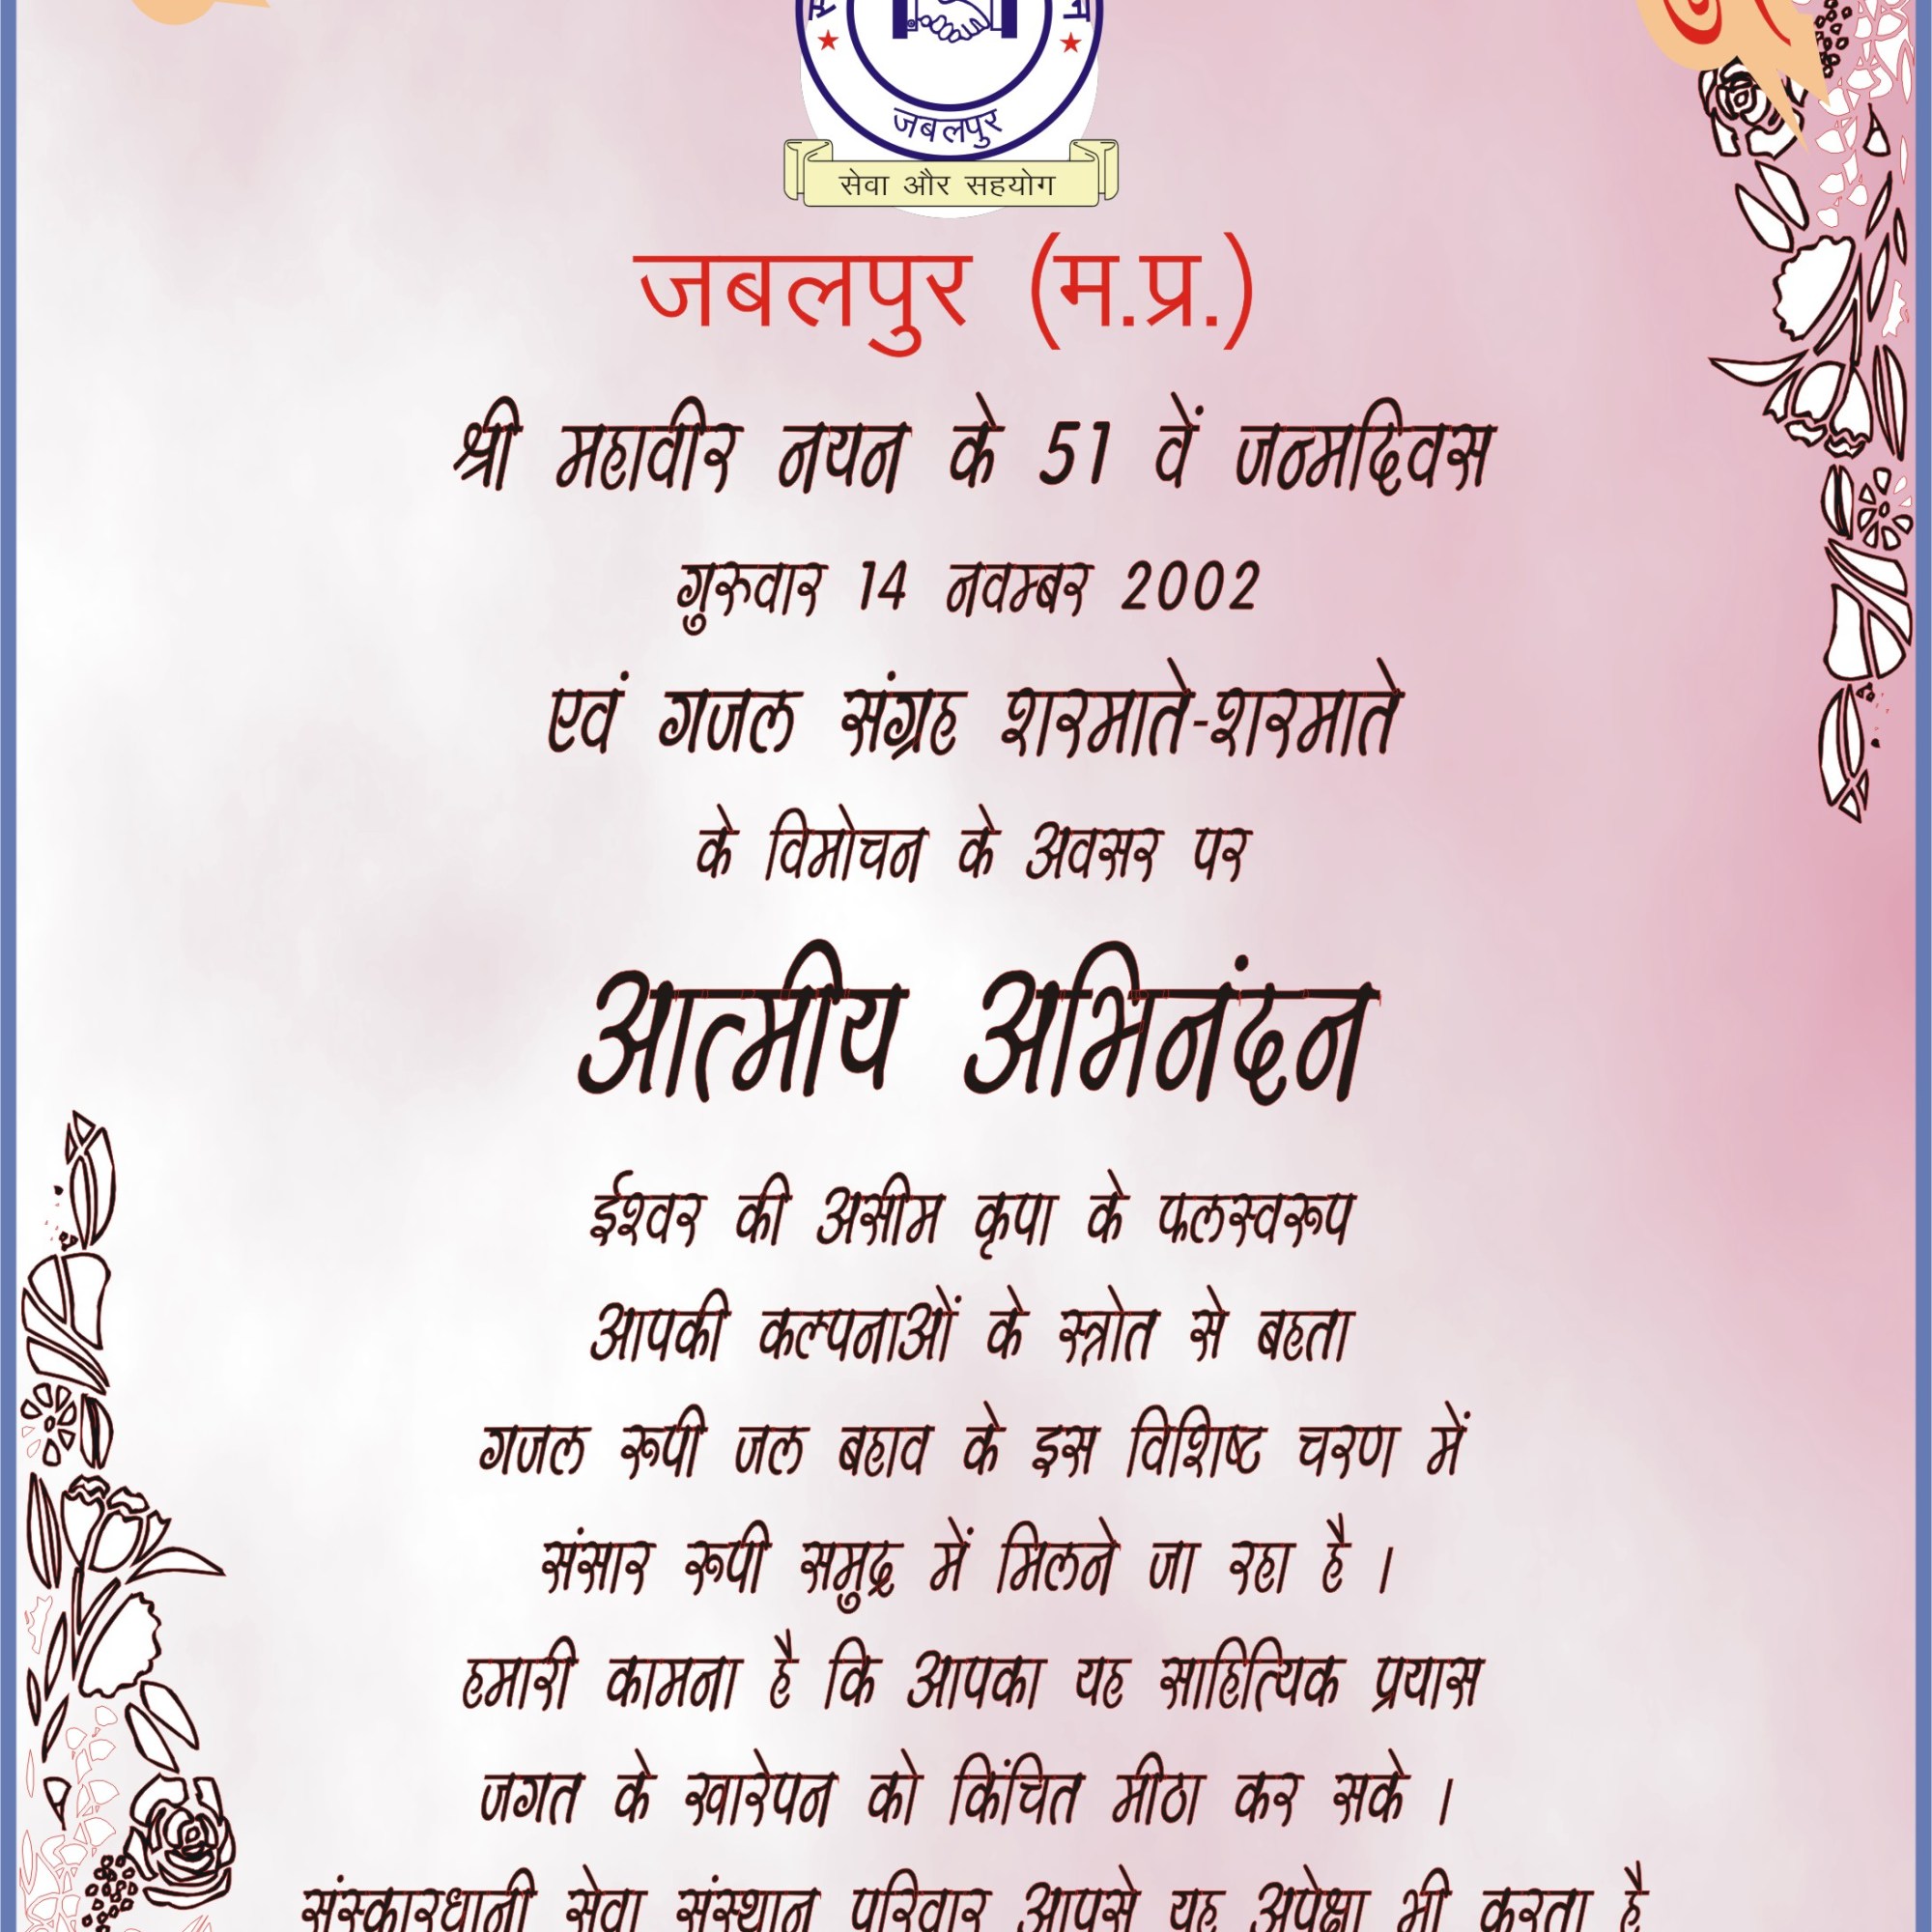 जबलपुर
सेवा और सहयोग
जबलपुर (म.प्र.)
श्री महावीर नयन के 51 वें जन्मदिवस
गुरुवार 14 नवम्बर 2002
एवं गजल संग्रह शरमाते-शरमाते
के विमोचन के अवसर पर
आत्मीय अभिनंदन
ईश्वर की असीम कृपा के फलस्वरूप
आपकी कल्पनाओं के स्त्रोत से बहता
गजल रूपी जल बहाव के इस विशिष्ट चरण में
संसार रूपी समुद्र में मिलने जा रहा है ।
हमारी कामना है कि आपका यह साहित्यिक प्रयास
जगत के खारेपन को किंचित मीठा कर सके ।
संस्कारधानी सेवा संस्थान परिवार आपसे यह अपेक्षा भी करता है